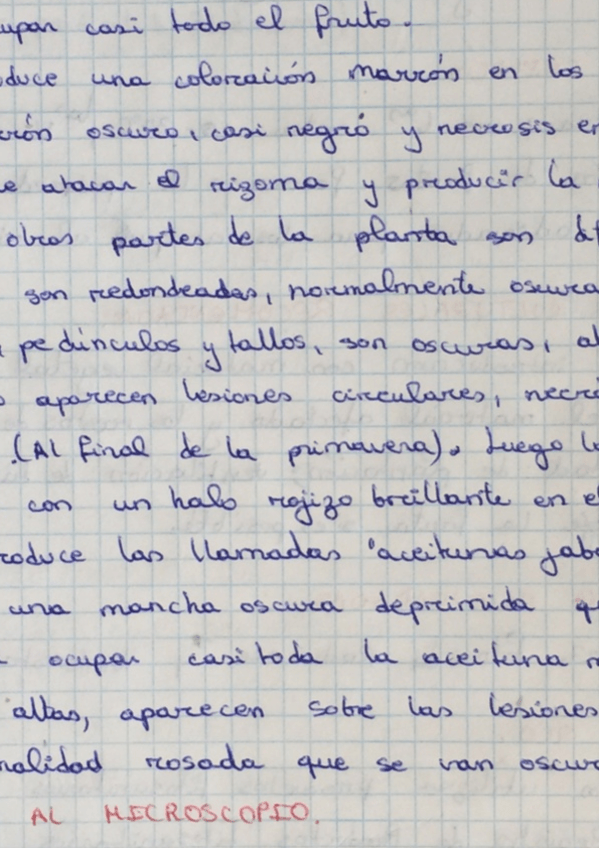 upan casi todo el fruto.
oduce una coloración marrón en los
rrón oscuro, casi negro y necrosis en
e atacar el rizoma y producir la
obras partes de la planta son
son redondeadas, normalmente oscura
pedúnculos y tallos, son oscuras, al
aparecen lesiones circulares, necró
(Al final de la primavera). Luego
con un halo rojizo brillante en e
roduce las llamadas "aceitunas jabo
una mancha oscura deprimida q
ocupar casi toda la aceituna
altas, aparecen sobre las lesiones
nalidad rosada que se van oscur
AL MICROSCOPIO.